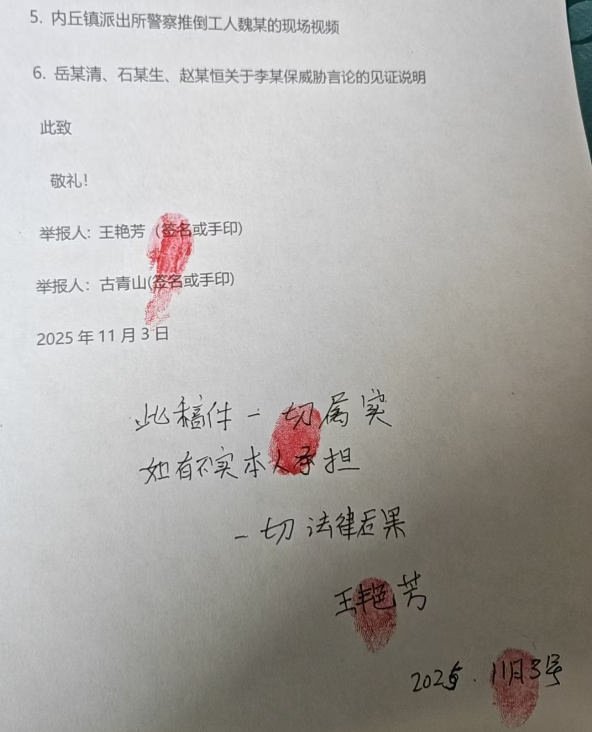 5. 内丘镇派出所警察推倒工人魏某的现场视频
6. 岳某清、石某生、赵某恒关于李某保威胁言论的见证说明
此致
敬礼！
举报人: 王艳芳（签名或手印)
举报人：古青山(签名或手印)
2025 年 11 月 3 日
此稿件一切属实
如有不实本人承担
一切法律后果
王艳芳
2025. 11月3号